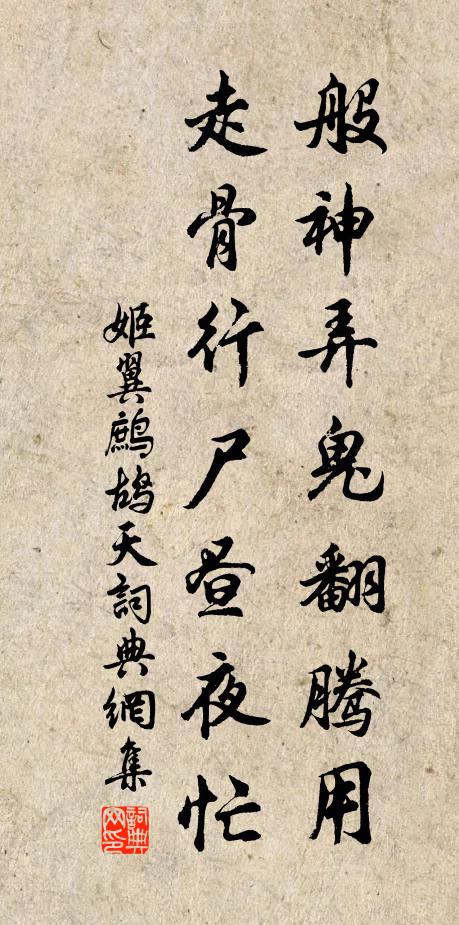 般神弄鬼翻騰用
走骨行尸昼夜忙
姬翼鷓鴣天詞典網集
詞典网印